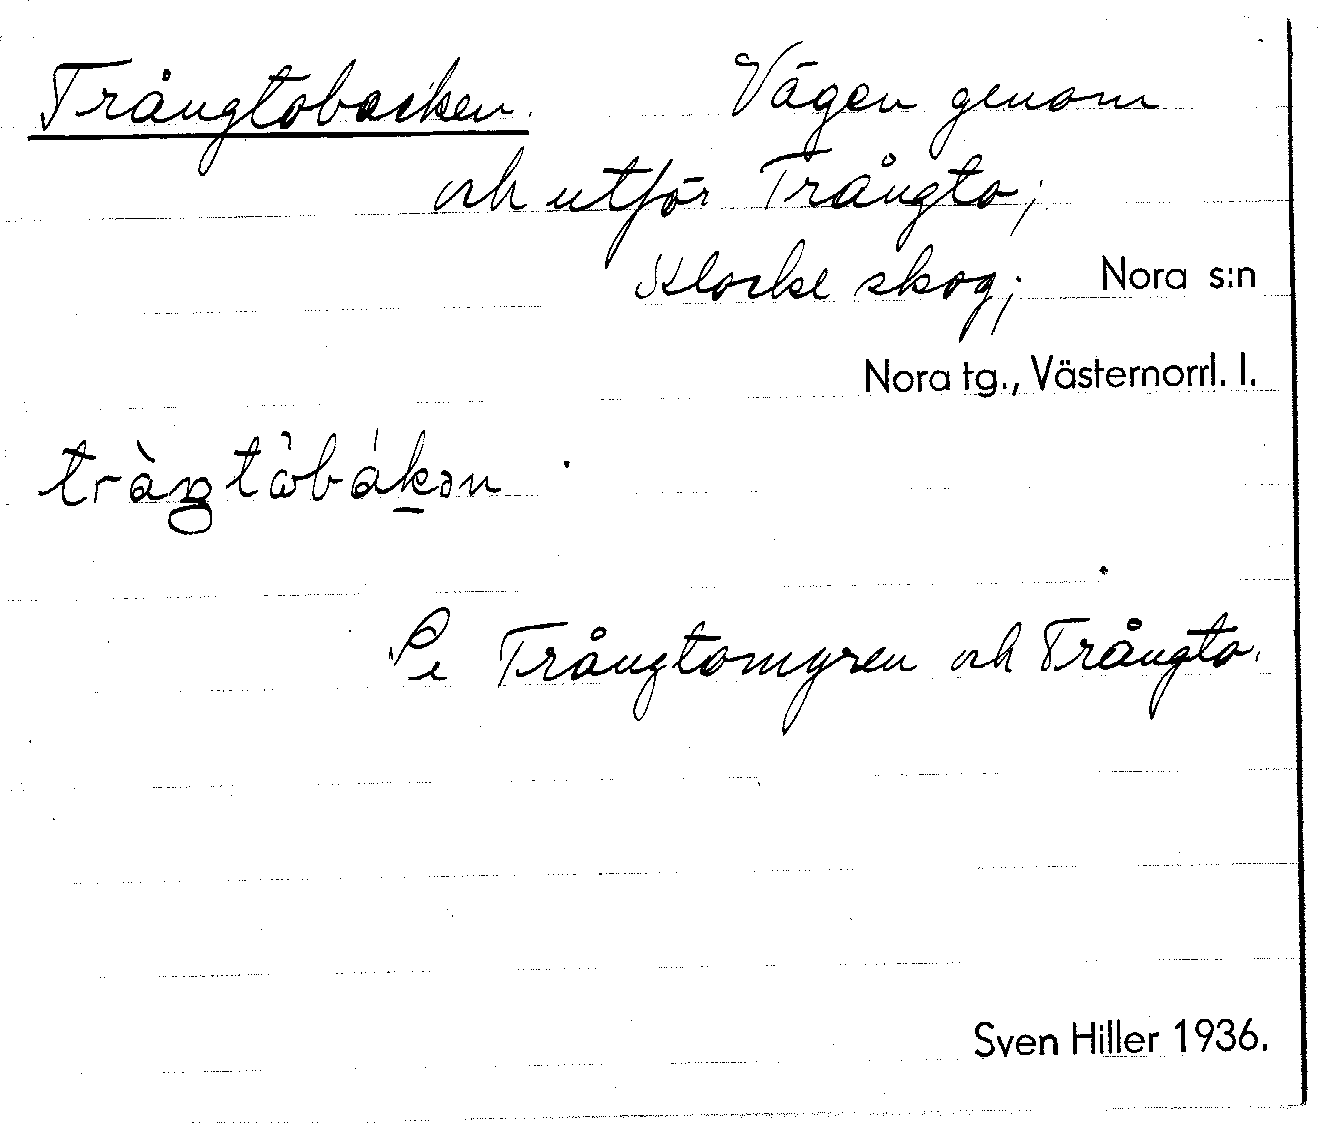 Trångtobacken. Vägen genom
och utför Trångto;
Klocke skog; Nora s:n
Nora tg., Västernorrl. l.
Se Trångtomyren och Trångto.
Sven Hiller 1936.